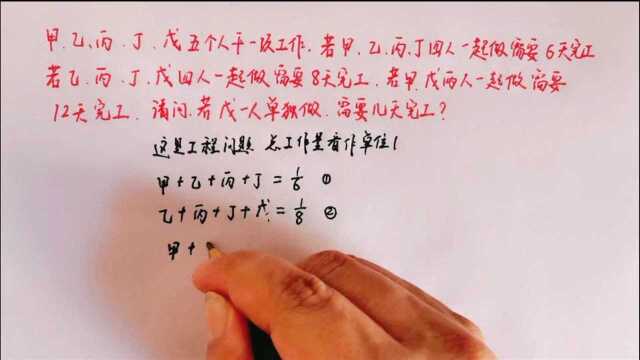 甲、乙、丙、丁、戊五个人干一项工作,若甲、乙、丙、丁四人一起做需要6天完工
若乙、丙、丁、戊四人一起做需要8天完工,若甲、戊两人一起做需要
12天完工,请问,若戊一人单独做,需要几天完工?
这是工程问题 总工作量看作单位1
甲+乙+丙+丁=1/6 ①
乙+丙+丁+戊=1/8 ②
甲+